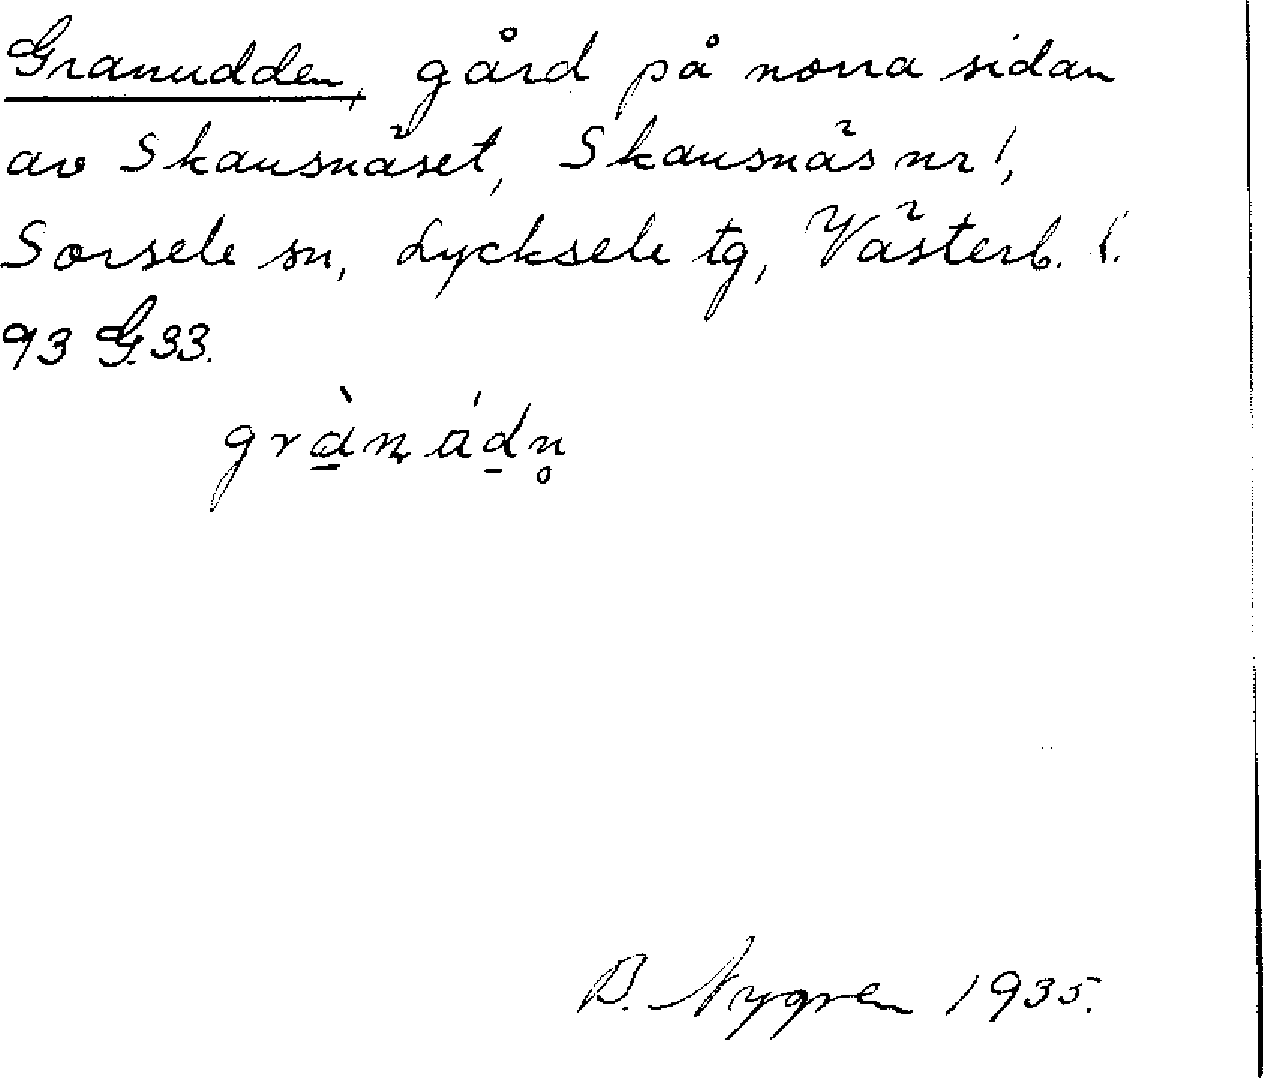 Granudden, gård på norra sidan
av Skausnäset, Skausnäs nr 1,
Sorsele sn, Lycksele tg, Västerb. l.
93 G. 33.
B. Nygren 1935.